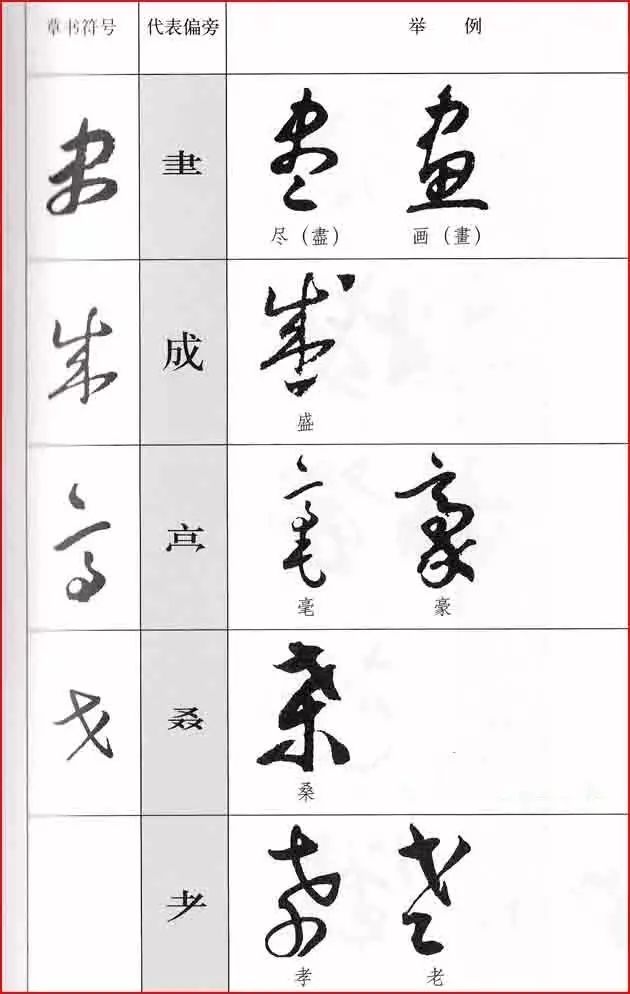 草书符号 代表偏旁 举 例
尽（盡） 画（畫）
成
盛
毫 豪
叒
桑
耂
孝 老